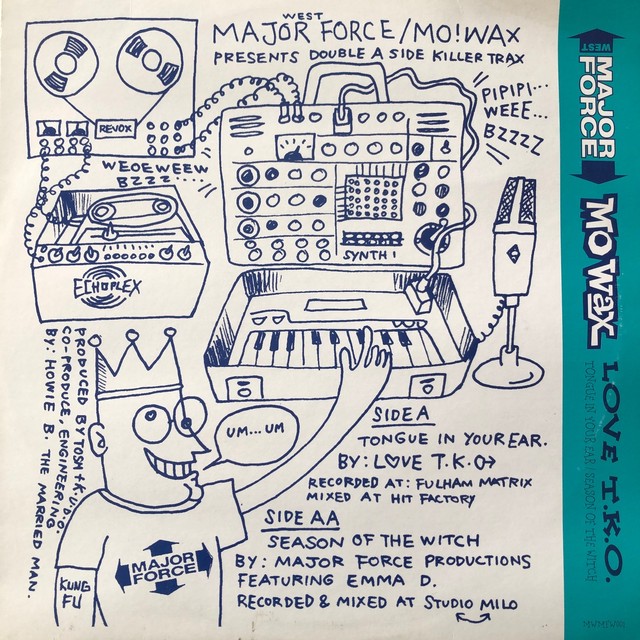 WEST
MAJOR FORCE/MO!WAX
PRESENTS DOUBLE A SIDE KILLER TRAX
PIPIPI...
WEEE...
BZZZZ
REVOX
WEOEWEEW
BZZZ.....
SYNTH 1
ECHOPLEX
PRODUCED BY TOSH + K.U.D.O.
CO-PRODUCE, ENGINEERING
BY: HOWIE B. THE MARRIED MAN.
UM... UM
SIDE A
TONGUE IN YOUR EAR.
BY: L♥VE T.K.O→
RECORDED AT: FULHAM MATRIX
MIXED AT HIT FACTORY
SIDE AA
SEASON OF THE WITCH
BY: MAJOR FORCE PRODUCTIONS
FEATURING EMMA D.
RECORDED & MIXED AT STUDIO MILO
MAJOR
FORCE
KUNG
FU
WEST
MAJOR
FORCE
MO WAX
LOVE T.K.O.
TONGUE IN YOUR EAR/SEASON OF THE WITCH